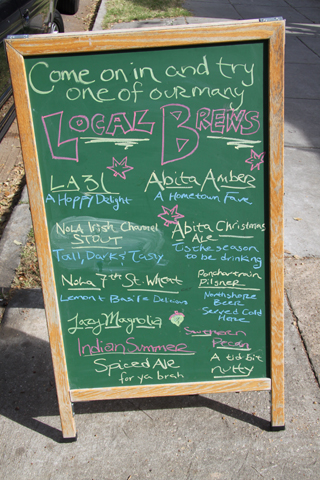 Come on in and try
one of our many
LOCAL BREWS
LA 31
A Hoppy Delight
Abita Amber
A Hometown Fave
NOLA Irish Channel
STOUT
Tall, Dark & Tasty
Abita Christmas
ALE
Tis the season
to be drinking
NOLA 7th St. Wheat
Lemon & Basil = Delicious
Pilsner
Northshore
Beer
Served Cold
Here
Lazy Magnolia
Indian Summer
Spiced Ale
for ya brah
Southern
Pecan
A tid bit
nutty